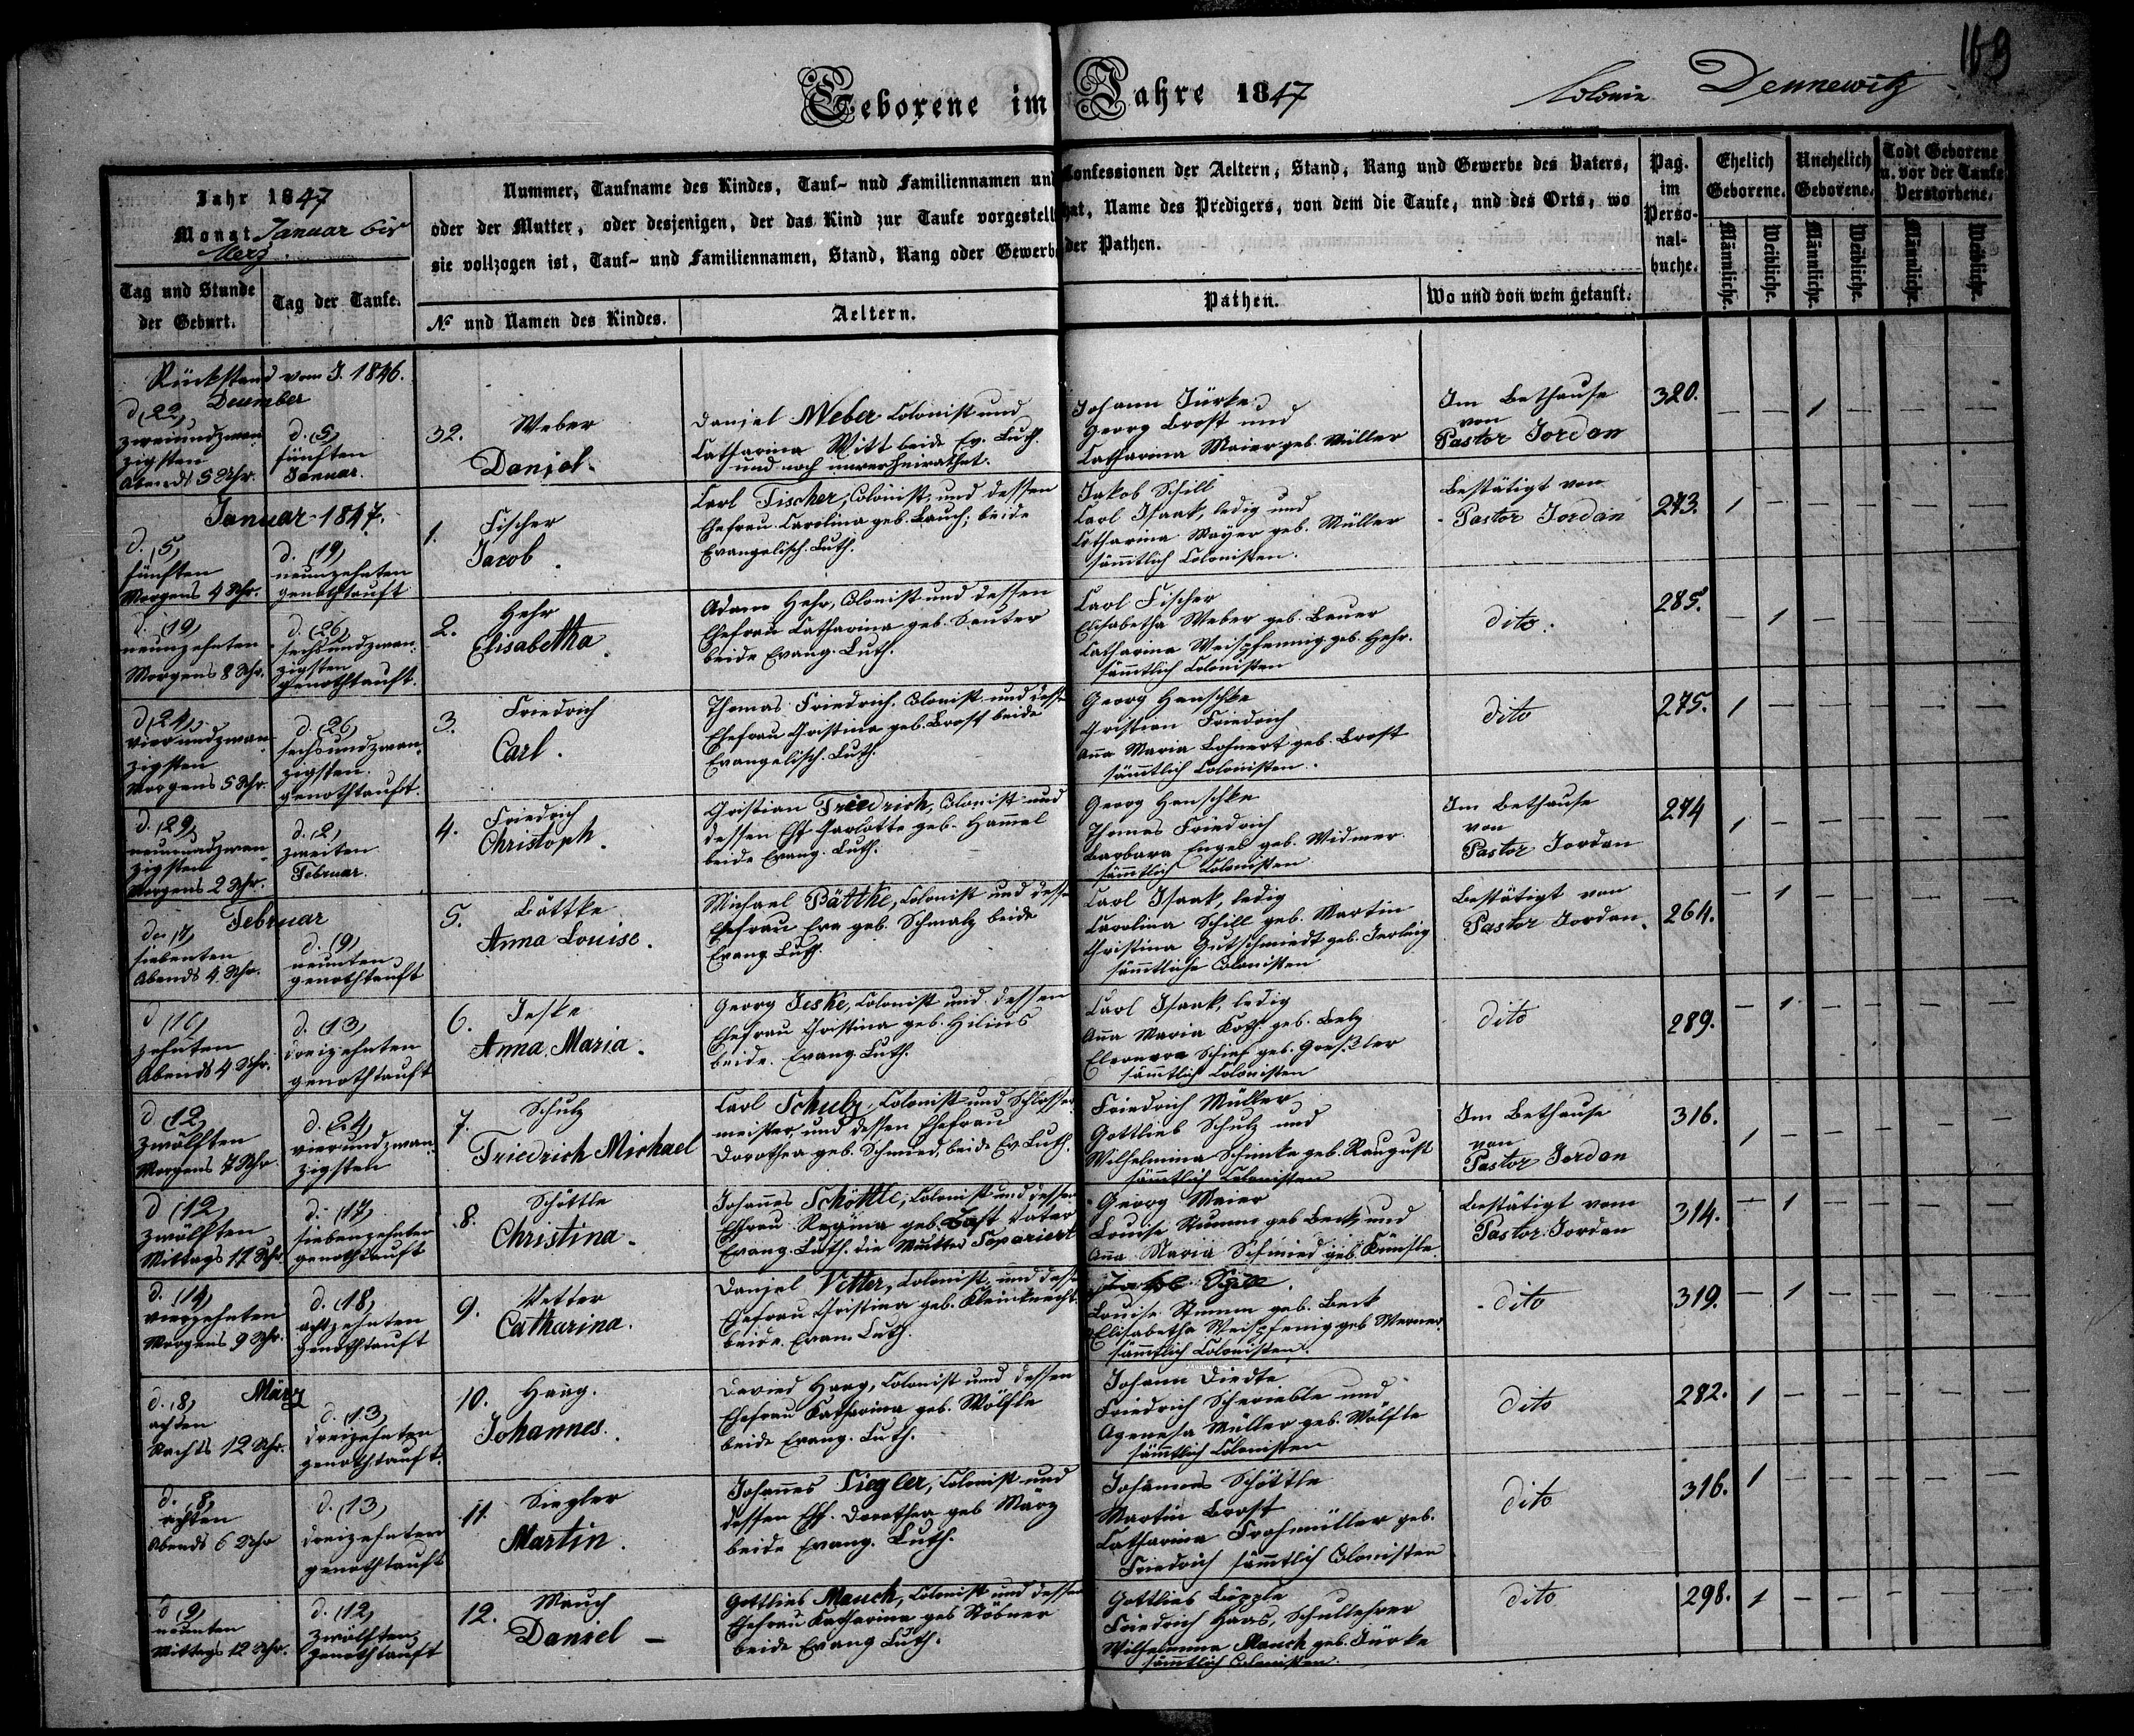 169
Geborene im Jahre 1847
Colonie Dennewitz
Jahr 1847
Monat Januar bis
Merz.
Tag und Stunde
der Geburt.
Tag der Taufe.
Nummer, Taufname des Kindes, Tauf- und Familiennamen und Confessionen der Aeltern, Stand, Rang und Gewerbe des Vaters,
oder der Mutter, oder desjenigen, der das Kind zur Taufe vorgestellt hat, Name des Predigers, von dem die Taufe, und des Orts, wo
sie vollzogen ist, Tauf- und Familiennamen, Stand, Rang oder Gewerbe der Pathen.
№ und Namen des Kindes.
Aeltern.
Pathen.
Wo und von wem getauft.
Pag.
im
Perso-
nal-
buche.
Ehelich
Geborene.
Unehelich
Geborene.
Todt Geborene
u. vor der Taufe
Verstorbene.
Männliche.
Weibliche.
Männliche.
Weibliche.
Männliche.
Weibliche.
Rückstand vom J. 1846.
December
d. (22)
zweiundzwan
zigsten
Abends 5 Uhr.
d. (5)
fünften
Januar.
32. Weber
Daniel.
Daniel Weber Colonist und
Catharina Witt beide Ev. Luth.
und noch unverheirathet.
Johann Jürke
Georg Brost und
Catharina Maier geb. Müller
Im Bethause
von
Pastor Jordan
320.
— — 1 — — —
Januar 1847.
d. (5)
fünften
Morgens 4 Uhr.
d. (19)
neunzehnten
genothtauft
1. Fischer
Jacob.
Carl Fischer, Colonist, und dessen
Ehefrau Carolina geb. Bauch; beide
Evangelisch. Luth.
Jakob Schill
Carl Isaak, ledig und
Catharina Mayer geb. Müller
sämmtlich Colonisten.
Bestätigt von
Pastor Jordan
273.
1 — — — — —
d. (19)
neunzehnten
Morgens 8 Uhr.
d. (26)
sechsundzwan-
zigsten
genothtauft.
2. Hehr
Elisabetha.
Adam Hehr, Colonist und dessen
Ehefrau Catharina geb. Sauter
beide Evang. Luth.
Carl Fischer
Elisabetha Weber geb. Bauer
Catharina Weispfennig geb. Hehr.
sämmtlich Colonisten
dito.
285.
— 1 — — — —
d. (24)
vierundzwan-
zigsten
Morgens 5 Uhr.
d. (26)
sechsundzwan-
zigsten.
genothtauft.
3. Friedrich
Carl.
Thomas Friedrich, Colonist und dessen
Ehefrau Christina geb. Brost beide
Evangelisch. Luth.
Georg Henschke
Christian Friedrich
Anna Maria Lehnert geb. Brost
sämmtlich Colonisten.
dito
275.
1 — — — — —
d. (29)
neunundzwan-
zigsten
Morgens 2 Uhr.
d. (2)
zweiten
Februar.
4. Friedrich
Christoph.
Christian Friedrich, Colonist und
dessen Ehf. Carlotte geb. Hammel
beide Evang. Luth.
Georg Henschke
Thomas Friedrich
Barbara Engel geb. Widmer
sämmtlich Colonisten
Im Bethause
von
Pastor Jordan
274
1 — — — — —
Februar
den (7)
siebenten
Abends 4 Uhr.
d. (9)
neunten
genothtauft
5. Bättke
Anna Louise.
Michael Bättke, Colonist und dessen
Ehefrau Eva geb. Schmalz beide
Evang. Luth.
Carl Isaak, ledig
Carolina Schill geb. Martin
Christina Gutschmiedt geb.
sämmtliche Colonisten
Bestätigt von
Pastor Jordan.
264.
— 1 — — — —
d. (10)
zehnten
Abends 4 Uhr.
d. (13)
dreizehnten
genothtauft
6. Jeske
Anna Maria.
Georg Jeske, Colonist und dessen
Ehefrau Christina geb. Hilius
beide. Evang. Luth.
Carl Isaak, ledig
Anna Maria geb. Belz
Eleonora geb.
sämmtlich Colonisten
dito
289.
— 1 — — — —
d. (12)
zwölften
Morgens 7 Uhr.
d. (24)
vierundzwan-
zigsten
7. Schulz
Friedrich Michael
Carl Schulz, Colonist und Schlosser
meister und dessen Ehefrau
Dorothea geb. Schmied, beide Ev. Luth.
Friedrich Müller
Gottlieb Schulz und
Wilhelmina Schimke geb. Raugust
sämmtlich Colonisten
Im Bethause
von
Pastor Jordan
316.
1 — — — — —
d. (12)
zwölften
Mittags 11 Uhr.
d. (17)
siebenzehnten
genothtauft
8. Schöttle
Christina.
Johannes Schöttle, Colonist und dessen
Ehfrau Regina geb. Vater
Evang. Luth. die Mutter Separiert
Georg Maier
Louise Stumm geb. Beck und
Anna Maria Schmied geb. Künstle.
Bestätigt vom
Pastor Jordan
314.
— 1 — — — —
d. (14)
vierzehnten
Morgens 9 Uhr.
d. (18)
achtzehnten
genothtauft
9. Vetter
Catharina.
Daniel Vetter, Colonist, und dessen
Ehefrau Christina geb. Kleinknecht
beide. Evan. Luth.
Louise Stumm geb. Beck
Elisabetha Weispfenig geb. Werner
sämmtlich Colonisten.
dito
319.
— 1 — — — —
März
d. (8)
achten
Nachts 12 Uhr.
d. (13)
dreizehnten
genothtauft.
10. Haag.
Johannes.
David Haag, Colonist und dessen
Ehefrau Katharina geb. Wölfle
beide Evang. Luth.
Johann Diedte
Friedrich und
Agenesa Müller geb. Wölfle
sämmtlich Colonisten
dito
282.
1 — — — — —
d. (8)
achten
Abends 6 Uhr
d. (13)
dreizehnten
genothtauft
11. Siegler
Martin.
Johannes Siegler, Colonist und
dessen Ehf. Dorothea geb März
beide Evang. Luth.
Johannes Schöttle
Martin Brost
Catharina Frohmüller geb.
Friedrich sämmtlich Colonisten
dito
316.
1 — — — — —
d. (9)
neunten
Mittags 12 Uhr.
d. (12)
zwölften
genothtauft
12. Mauch
Daniel —
Gottlieb Mauch, Colonist und dessen
Ehefrau Katharina geb Köbner
beide Evang Luth.
Gottlieb Läpple
Friedrich Haas, Schullehrer
Wilhelmina Mauch geb. Jürke
sämmtlich Colonisten.
dito
298.
1 — — — — —